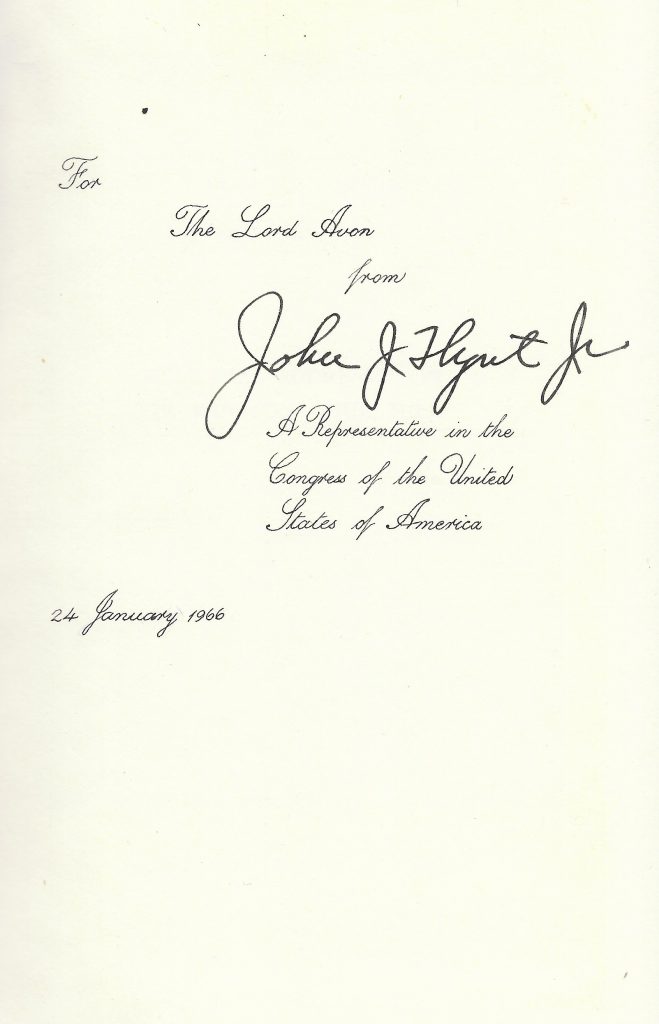 For
The Lord Avon
from
John J Flynt Jr
A Representative in the
Congress of the United
States of America
24 January 1966